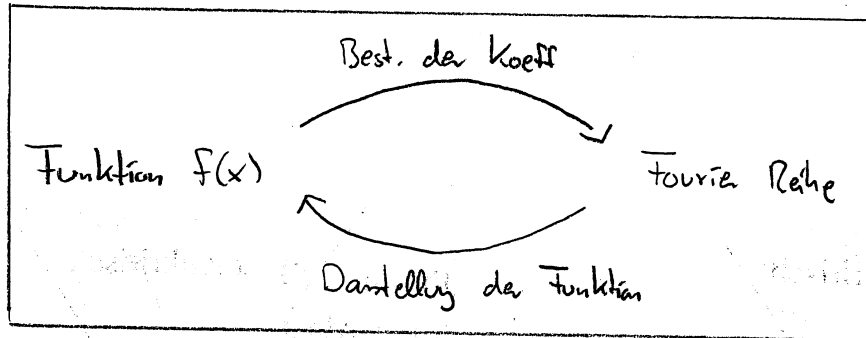 Best. der Koeff
Funktion f(x)
Fourier Reihe
Darstellung der Funktion